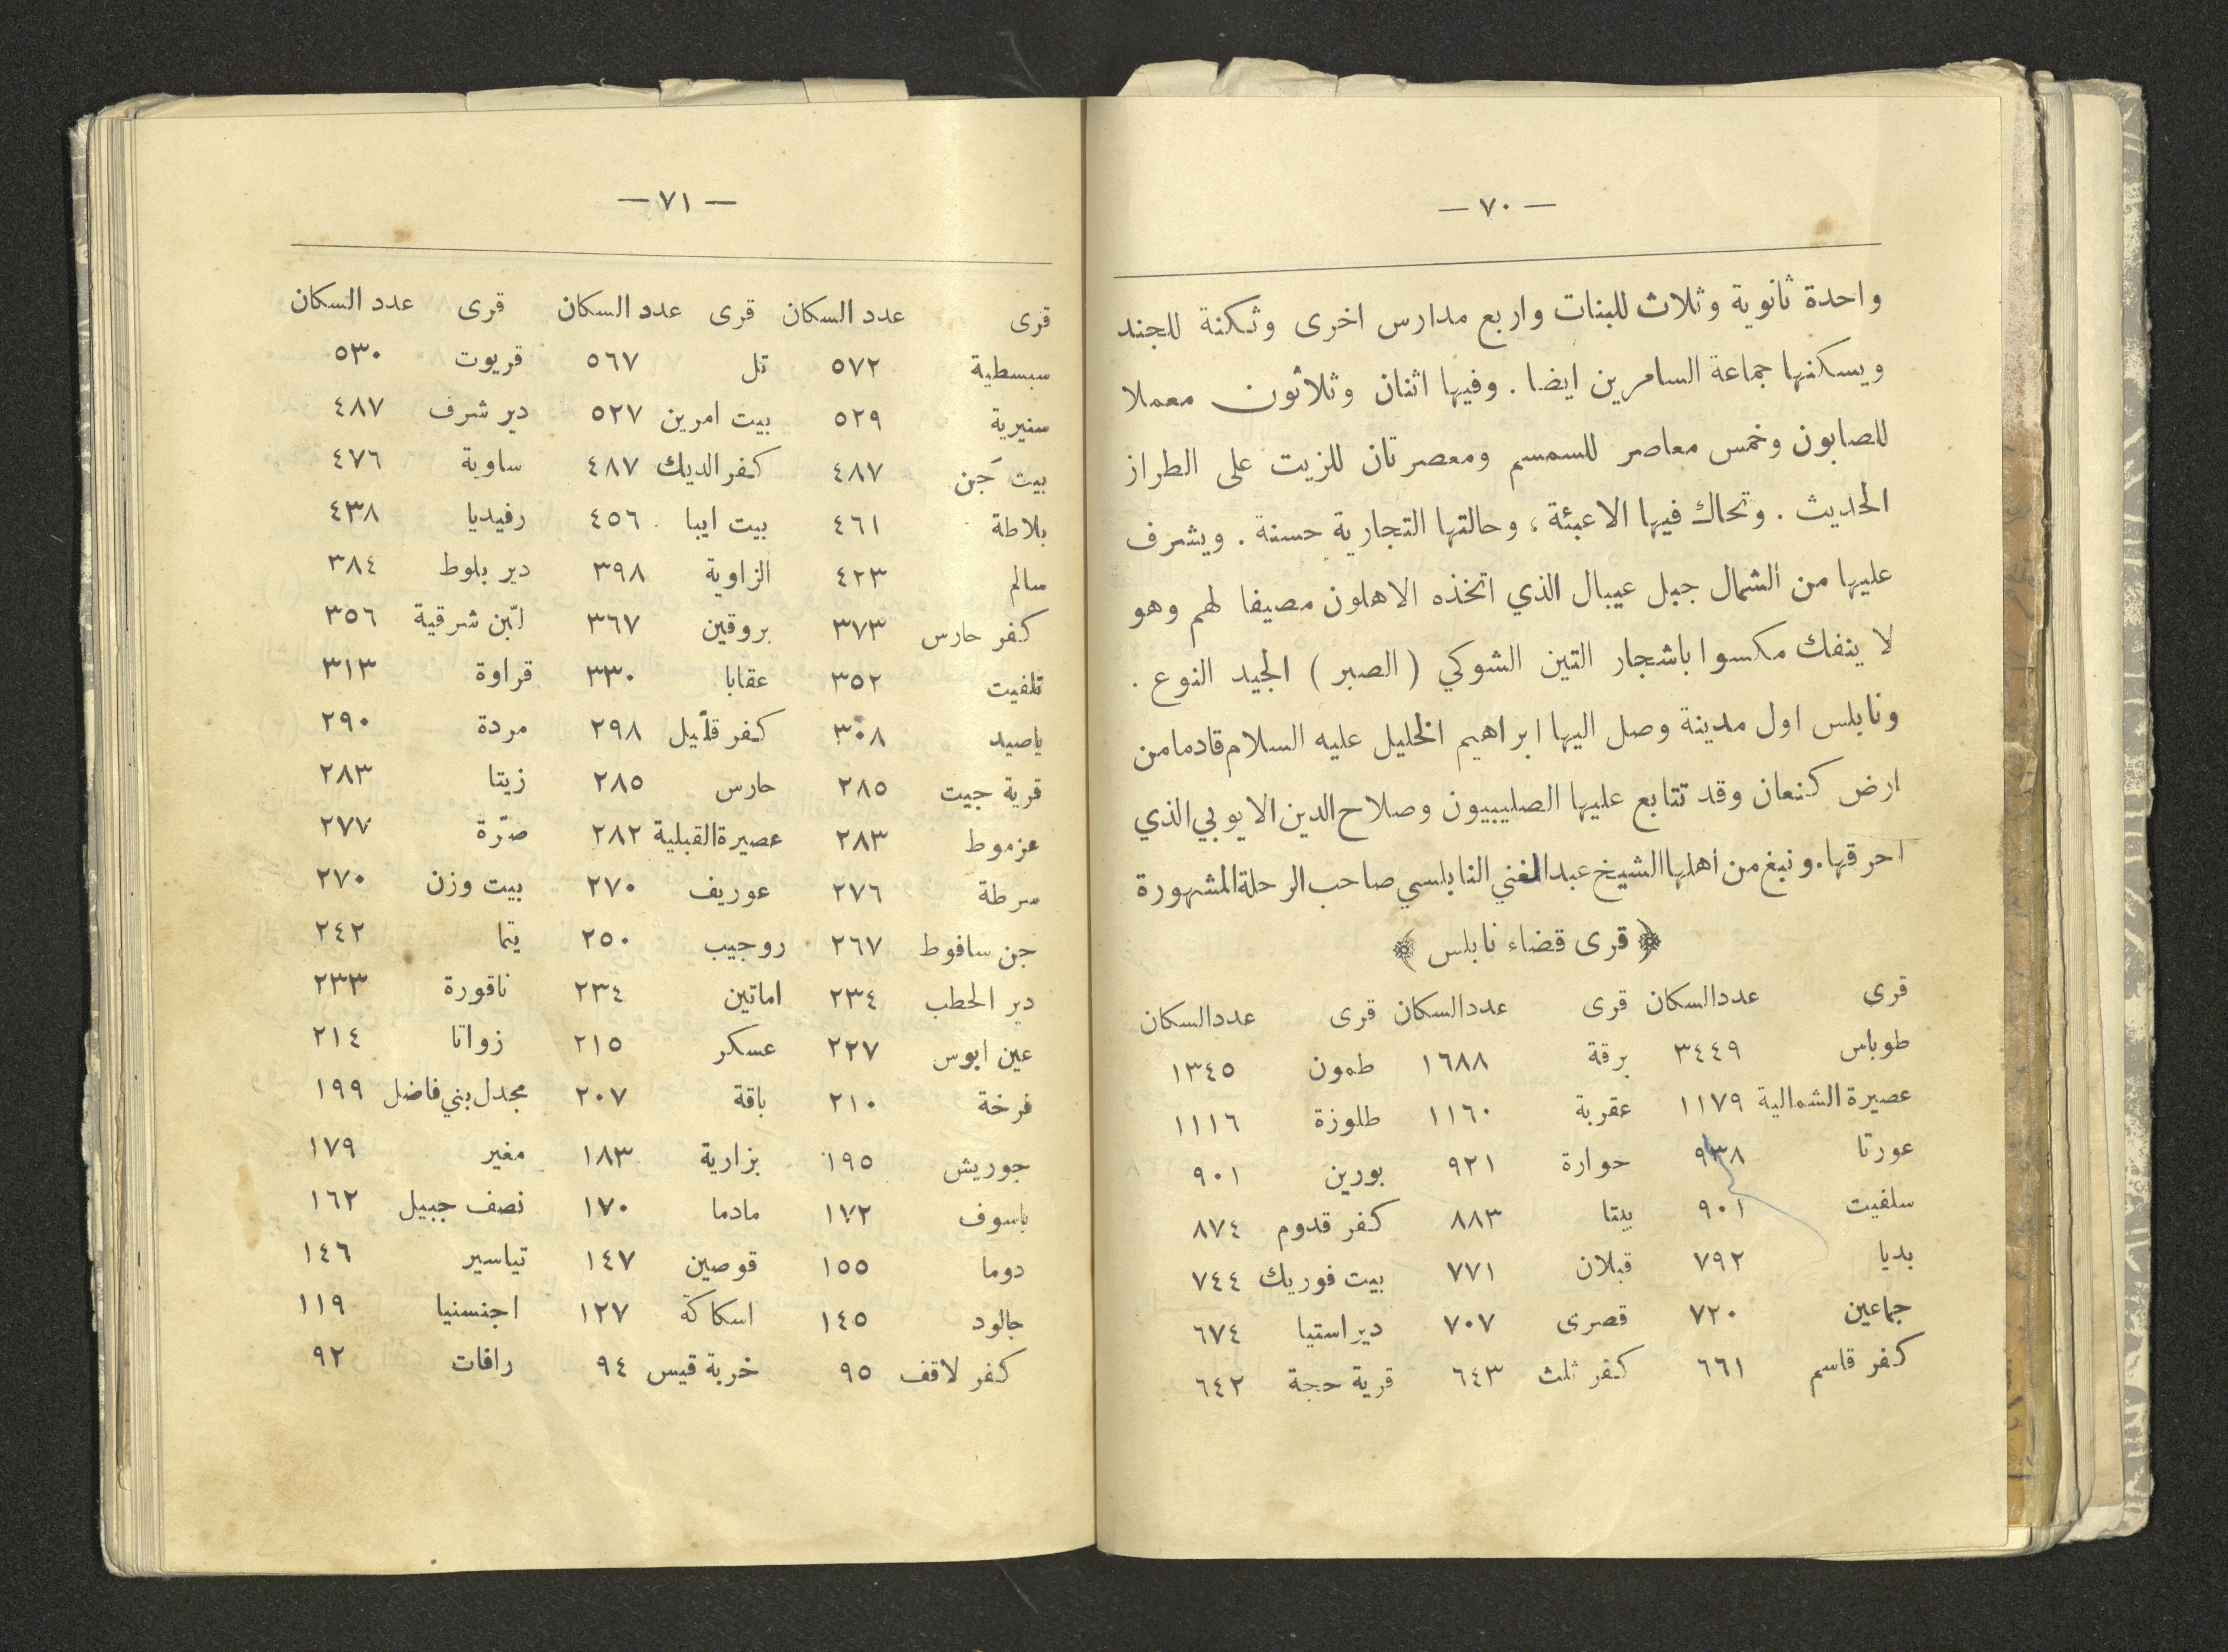 — ٧٠ —
واحدة ثانوية وثلاث للبنات واربع مدارس اخرى وثكنة للجند
ويسكنها جماعة السامرين ايضا . وفيها اثنان وثلاثون معملا
للصابون وخمس معاصر للسمسم ومعصرتان للزيت على الطراز
الحديث . وتحاك فيها الاعبئة ، وحالتها التجارية حسنة . ويشرف
عليها من الشمال جبل عيبال الذي اتخذه الاهلون مصيفا لهم وهو
لا ينفك مكسوا باشجار التين الشوكي ( الصبر ) الجيد النوع .
ونابلس اول مدينة وصل اليها ابراهيم الخليل عليه السلام قادما من
ارض كنعان وقد تتابع عليها الصليبيون وصلاح الدين الايوبي الذي
احرقها . ونبغ من أهلها الشيخ عبد الغني النابلسي صاحب الرحلة المشهورة
﴿ قرى قضاء نابلس ﴾
قرى عدد السكان قرى عدد السكان قرى عدد السكان
طوباس ٣٤٤٩ برقة ١٦٨٨ طمون ١٣٤٥
عصيرة الشمالية ١١٧٩ عقربة ١١٦٠ طلوزة ١١١٦
عورتا ٩٣٨ حوارة ٩٢١ بورين ٩٠١
سلفيت ٩٠١ بيتا ٨٨٣ كفر قدوم ٨٧٤
بديا ٧٩٢ قبلان ٧٧١ بيت فوريك ٧٤٤
جماعين ٧٢٠ قصرى ٧٠٧ دير استيا ٦٧٤
كفر قاسم ٦٦١ كفر ثلث ٦٤٣ قرية حجة ٦٤٢
— ٧١ —
قرى عدد السكان قرى عدد السكان قرى عدد السكان
سبسطية ٥٧٢ تل ٥٦٧ قريوت ٥٣٠
سنيرية ٥٢٩ بيت امرين ٥٢٧ دير شرف ٤٨٧
بيت جَن ٤٨٧ كفر الديك ٤٨٧ ساوية ٤٧٦
بلاطة ٤٦١ بيت ايبا ٤٥٦ رفيديا ٤٣٨
سالم ٤٢٣ الزاوية ٣٩٨ دير بلوط ٣٨٤
كفر حارس ٣٧٣ بروقين ٣٦٧ لبّن شرقية ٣٥٦
تلفيت ٣٥٢ عقابا ٣٣٠ قراوة ٣١٣
ياصيد ٣٠٨ كفر قلّيل ٢٩٨ مردة ٢٩٠
قرية جيت ٢٨٥ حارس ٢٨٥ زيتا ٢٨٣
عزموط ٢٨٣ عصيرة القبلية ٢٨٢ صرّة ٢٧٧
سرطة ٢٧٦ عوريف ٢٧٠ بيت وزن ٢٧٠
جن سافوط ٢٦٧ روجيب ٢٥٠ يتما ٢٤٢
دير الحطب ٢٣٤ اماتين ٢٣٤ ناقورة ٢٣٣
عين ابوس ٢٢٧ عسكر ٢١٥ زواتا ٢١٤
فرخة ٢١٠ باقة ٢٠٧ مجدل بني فاضل ١٩٩
جوريش ١٩٥ بزارية ١٨٣ مغير ١٧٩
ياسوف ١٧٢ مادما ١٧٠ نصف جبيل ١٦٢
دوما ١٥٥ قوصين ١٤٧ تياسير ١٤٦
جالود ١٤٥ اسكاكة ١٢٧ اجنسنيا ١١٩
كفر لاقف ٩٥ خربة قيس ٩٤ رافات ٩٢